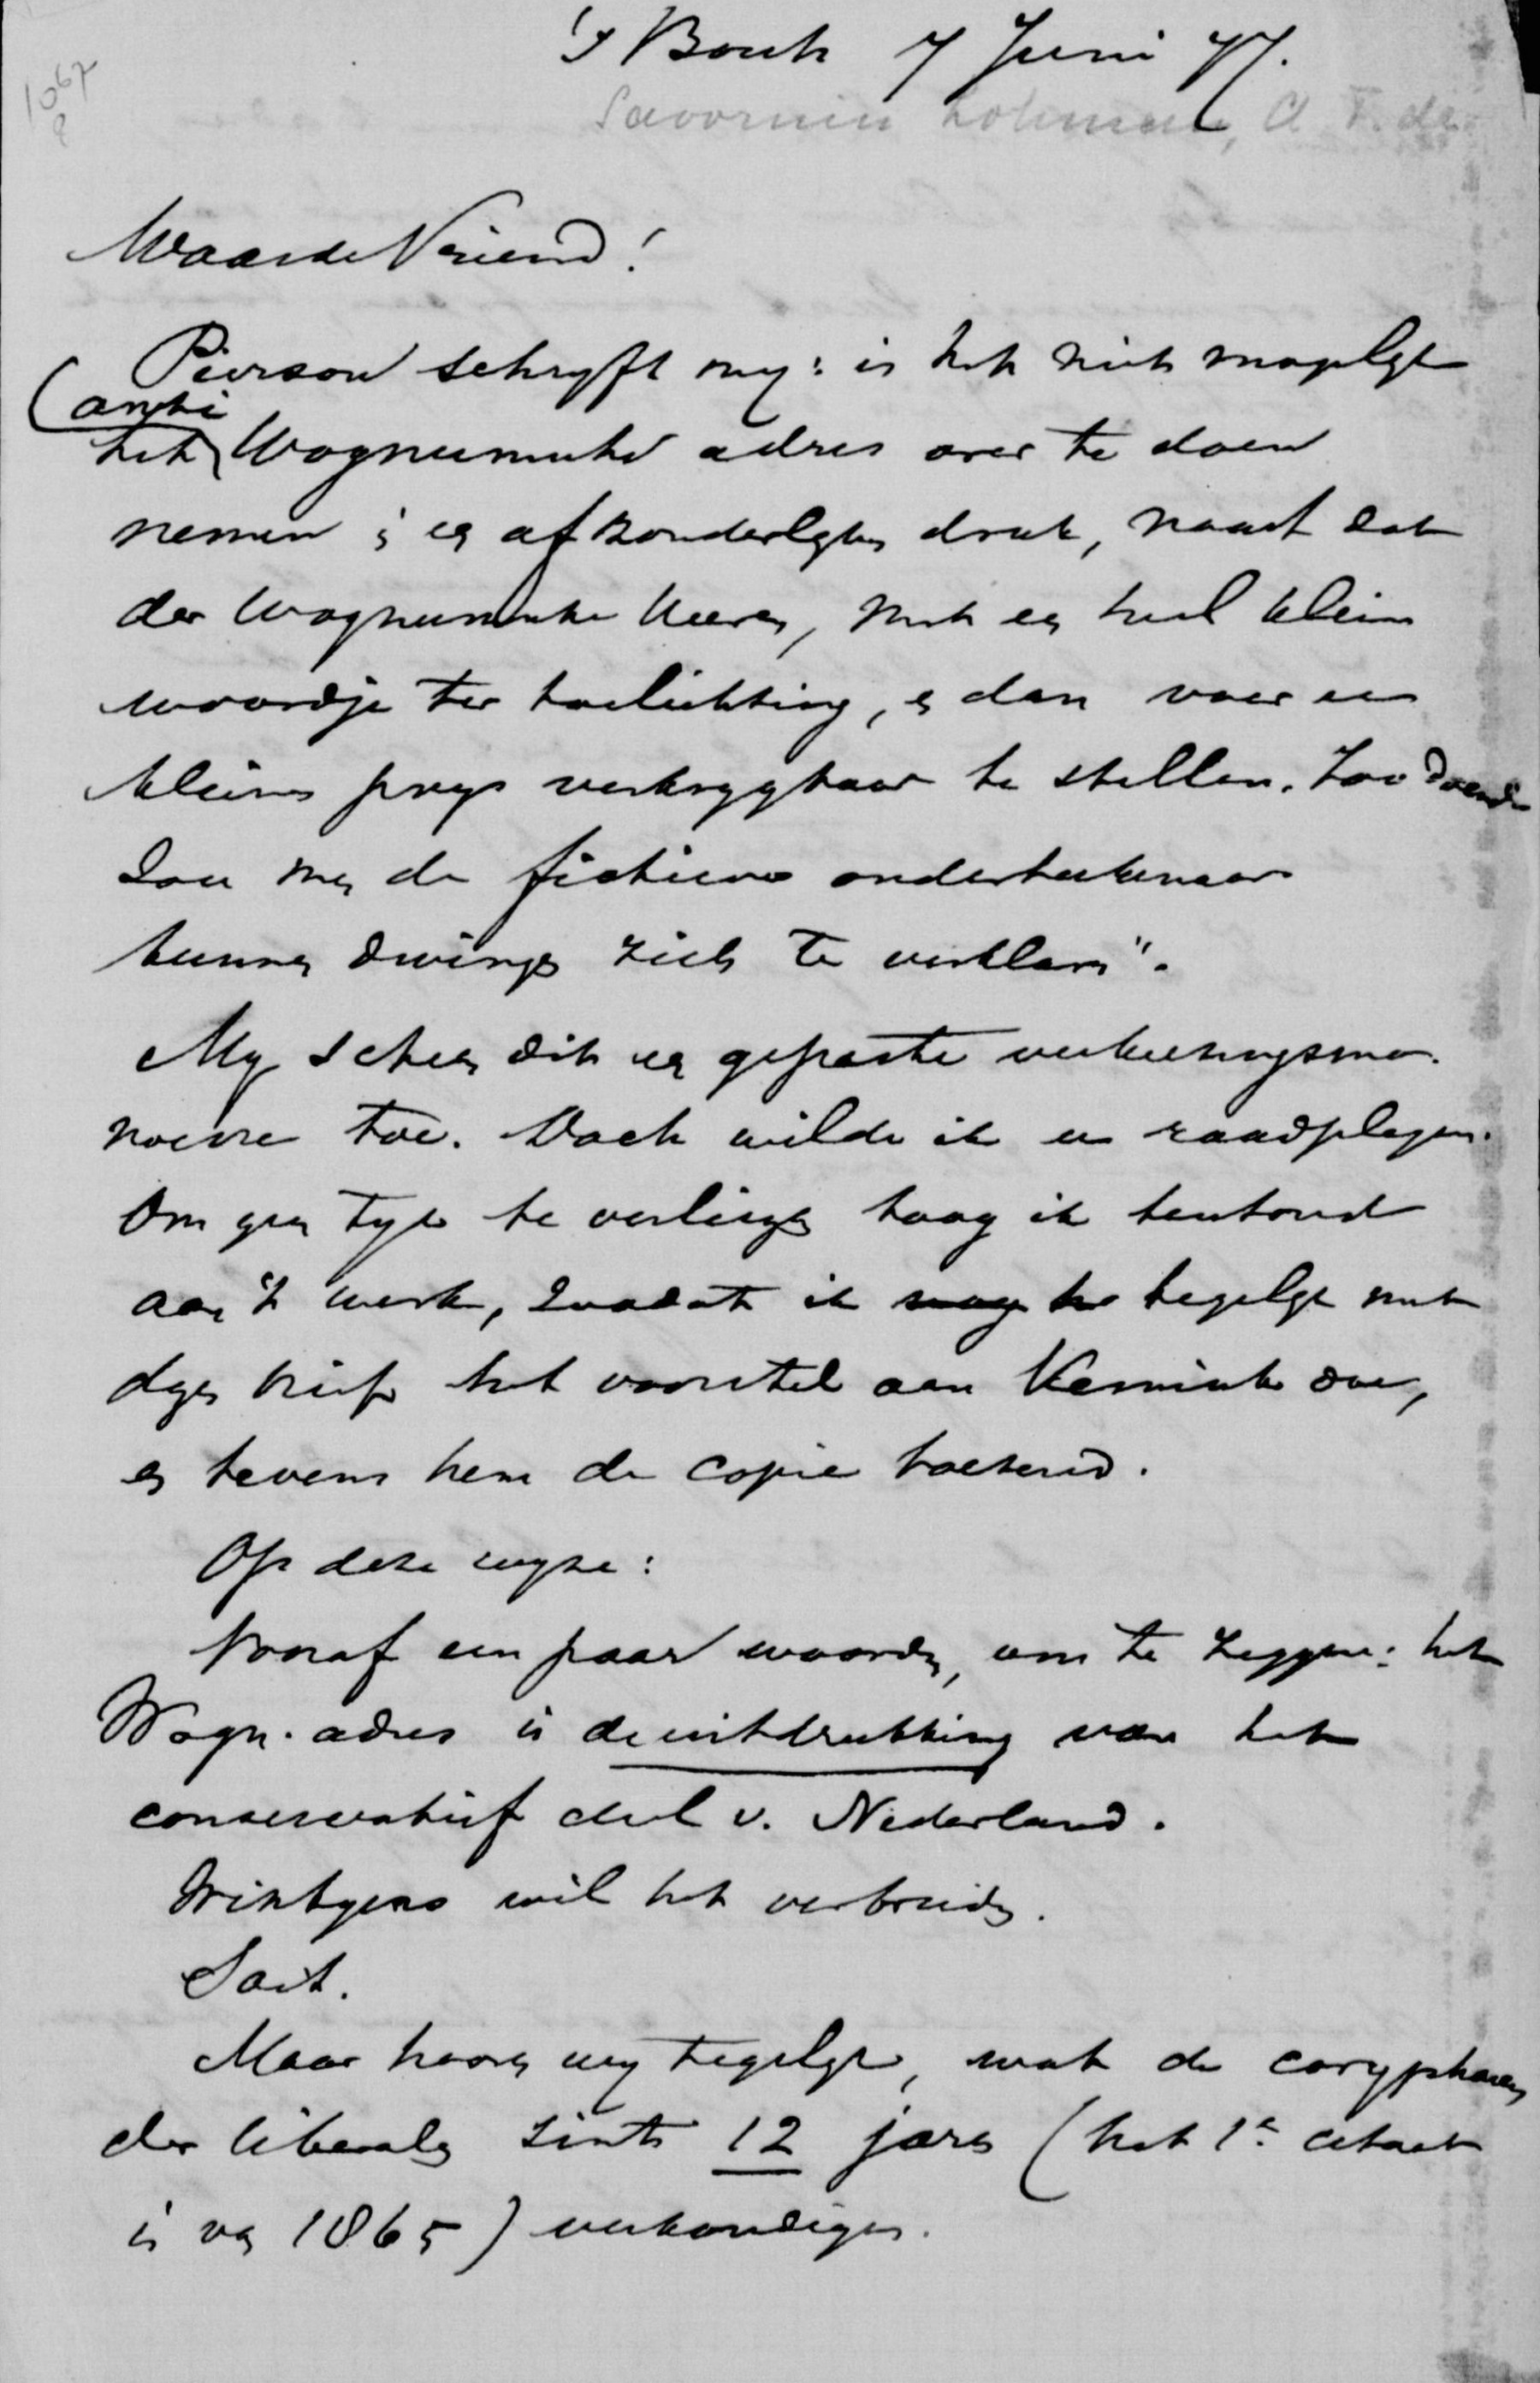 's Bosch 7 Juni 77.
1067
Savornin Lohman, A. F. de
Waarde Vriend!
Pierson schryft my: is het niet mogelyk
(anti
het Wognumsche adres over te doen
nemen in een afzonderlyken druk, naast dat
der Wognumsche Heeren, met een heel klein
woordje ter toelichting, en dan voor een
kleine prys verkrygbaar te stellen. Zoo doende
zou men de fictieve onderteekenaars
kunnen dwingen zich te verklaren".
My scheen dit een gepaste verkiezingsma-
noevre toe. Doch wilde ik u raadplegen.
Om geen tyd te verliezen toog ik terstond
aan 't werk, zoodat ik tegelyk met
dezen brief het voorstel aan Kemink doe,
en tevens hem de copie toezend.
Op deze wyze:
Vooraf een paar woorden, om te zeggen: het
Wogn. adres is de uitdrukking van het
conservatief deel v. Nederland.
Wintgens wil het verbreiden.
Soit.
Maar hooren wy tegelyk, wat de coryphaeen
der liberalen sints 12 jaren (het 1e citaat
is van 1865) verkondigen.